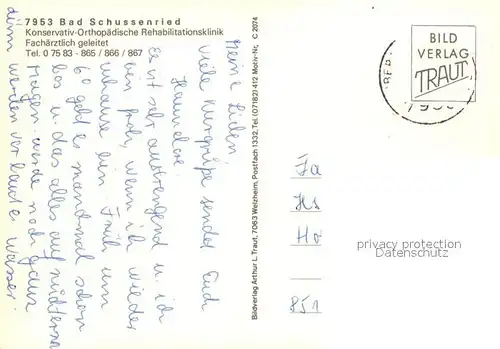 7953 Bad Schussenried
Konservativ-Orthopädische Rehabilitationsklinik
Fachärztlich geleitet
Tel. 0 75 83 - 865 / 866 / 867
Meine Lieben,
viele Kurgrüße sendet Euch
Hannelore.
Es ist sehr anstrengend u. ich
bin froh, wenn ich wieder
zuhause bin. Früh um
6⁰ geht es manchmal schon
los u. das alles auf nüchternen
Magen. werde noch ganz
dünn werden vor lauter Wasser
Bildverlag Arthur L. Traut, 7063 Welzheim, Postfach 1332, Tel. (07182) 412 Motiv-Nr. C 2074
BILD
VERLAG
TRAUT
Fa
Hs
Ho
851
privacy protection
Datenschutz